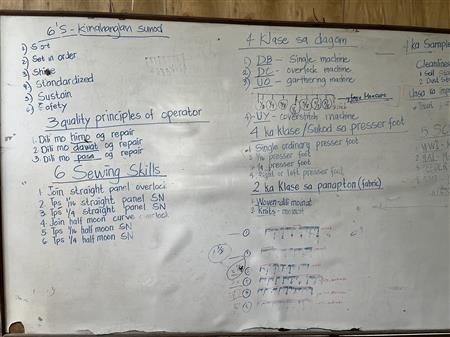 6'S - Kinahanglan sunod
1) Sort
2) Set in order
3) Shine
4) Standardized
5) Sustain
6) Safety
3 quality principles of operator
1. Dili mo himo og repair
2. Dili mo dawat og repair
3. Dili mo pasa og repair
6 Sewing Skills
1 Join straight panel overlock
2 Tps 1/16 straight panel SN
3 Tps 1/4 straight panel SN
4 Join half moon curve overlock
5 Tps 1/16 half moon SN
6 Tps 1/4 half moon SN
4 Klase sa dagom
1) DB - Single machine
2) DC - overlock machine
3) UO - garthering machine
4) UY - coverstitch machine
4 ka klase/Sukod sa presser foot
1 Single ordinary presser foot
2 1/16 presser foot
3 1/4 presser foot
4 Right or left presser foot
2 ka Klase sa panapton (fabric)
1 Woven - dili moinat
2 Knits - moinat
4 ka Sample
Cleanliness
1 Soil
2 Dust